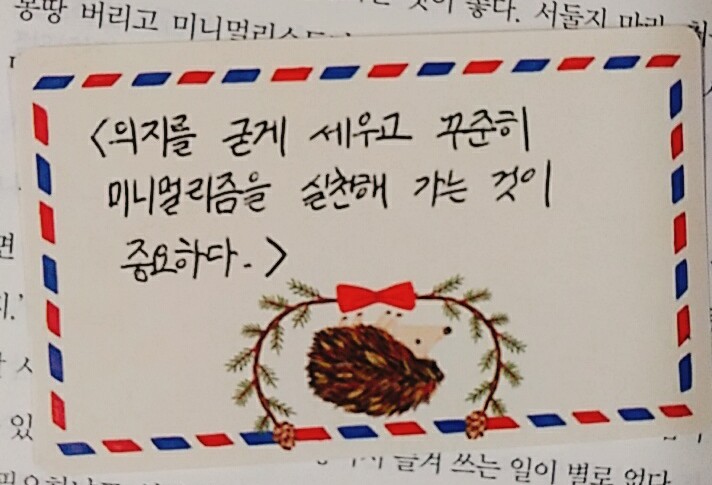 몽땅 버리고 미니멀리스트
좋다. 서둘지 마라.
<의지를 굳게 세우고 꾸준히
미니멀리즘을 실천해 가는 것이
중요하다.>
면
지.'
있
즐겨 쓰는 일이 별로 없다.